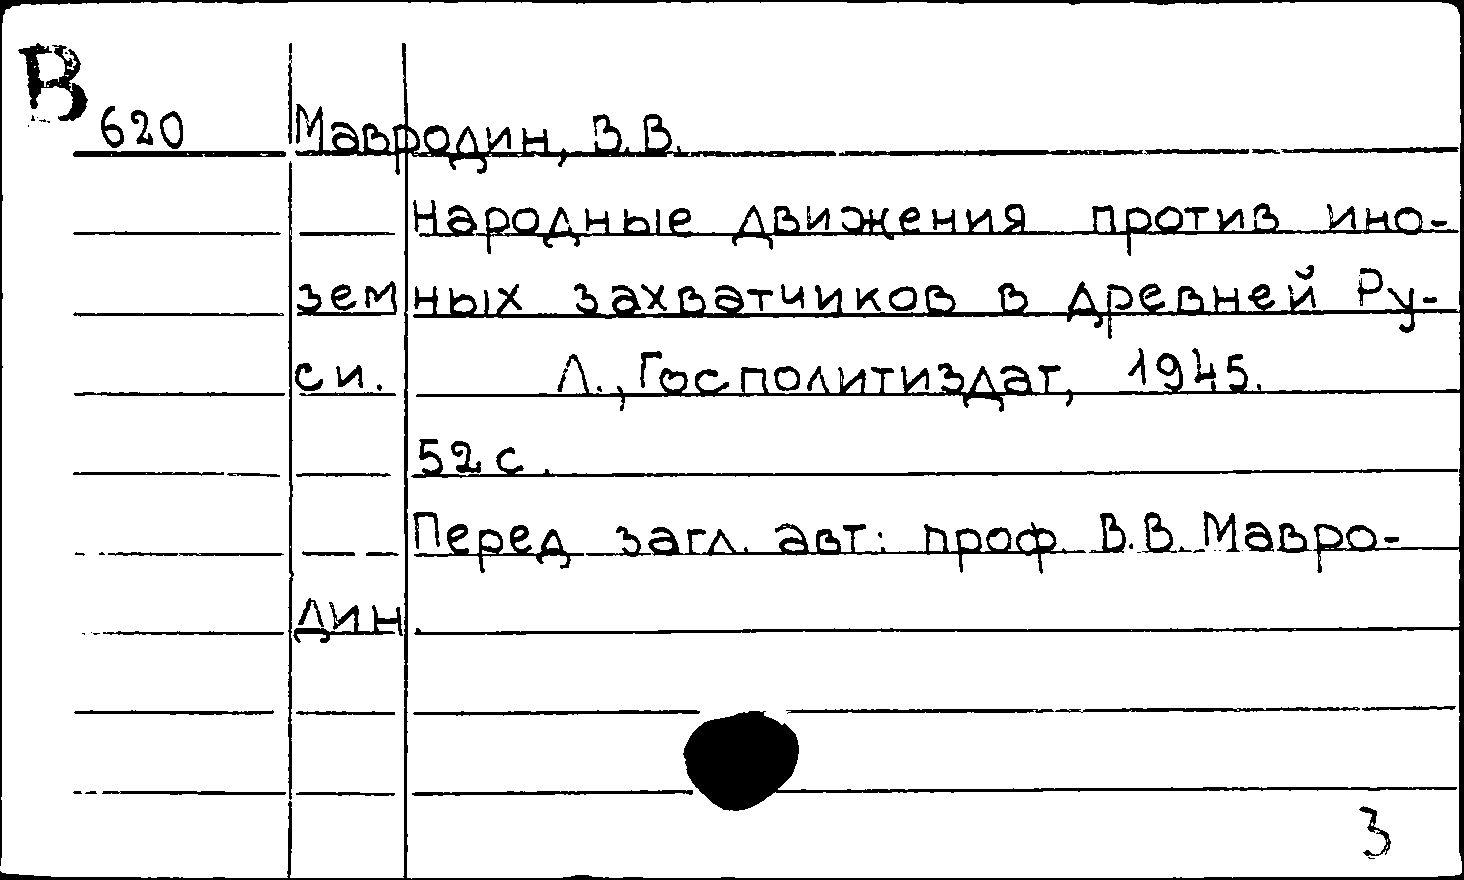 В
620 Мавродин, В.В.
Народные движения против ино-
земных захватчиков в древней Ру-
си. Л., Госполитиздат, 1945.
52 с.
Перед загл. авт: проф. В.В. Мавро-
дин.
3